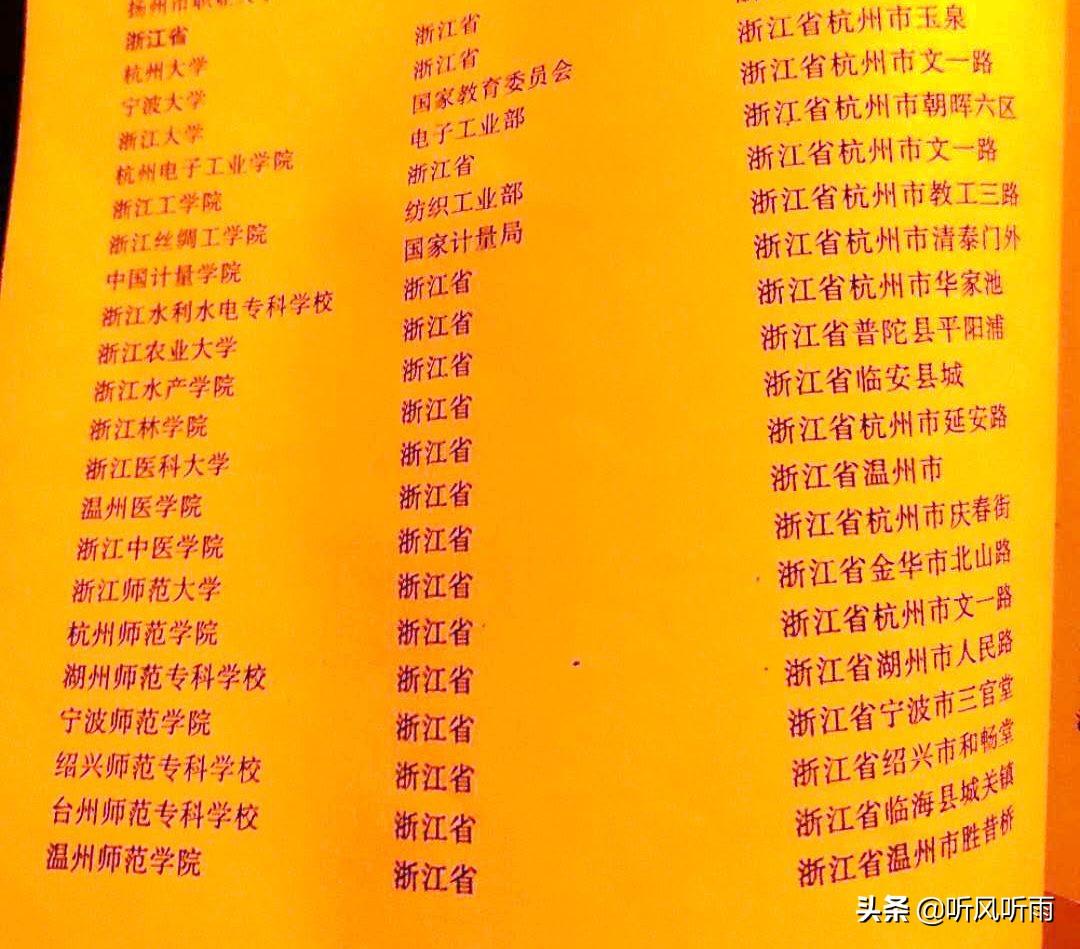 浙江省
杭州大学 浙江省
宁波大学 浙江省
浙江大学 国家教育委员会 浙江省杭州市玉泉
杭州电子工业学院 电子工业部 浙江省杭州市文一路
浙江工学院 浙江省 浙江省杭州市朝晖六区
浙江丝绸工学院 纺织工业部 浙江省杭州市文一路
中国计量学院 国家计量局 浙江省杭州市教工三路
浙江水利水电专科学校 浙江省 浙江省杭州市清泰门外
浙江农业大学 浙江省 浙江省杭州市华家池
浙江水产学院 浙江省 浙江省普陀县平阳浦
浙江林学院 浙江省 浙江省临安县城
浙江医科大学 浙江省 浙江省杭州市延安路
温州医学院 浙江省 浙江省温州市
浙江中医学院 浙江省 浙江省杭州市庆春街
浙江师范大学 浙江省 浙江省金华市北山路
杭州师范学院 浙江省 浙江省杭州市文一路
湖州师范专科学校 浙江省 浙江省湖州市人民路
宁波师范学院 浙江省 浙江省宁波市三官堂
绍兴师范专科学校 浙江省 浙江省绍兴市和畅堂
台州师范专科学校 浙江省 浙江省临海县城关镇
温州师范学院 浙江省 浙江省温州市胜昔桥
头条 @听风听雨